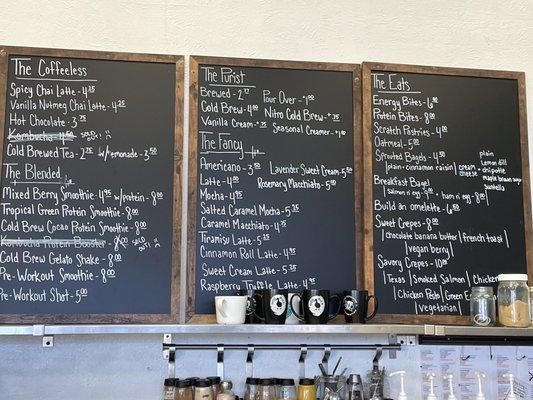 The Coffeeless
Spicy Chai Latte - 4.25
Vanilla Nutmeg Chai Latte - 4.25
Hot Chocolate - 3.25
Kombucha - 4.50 SOLD
Cold Brewed Tea - 2.75 w/lemonade - 3.50
The Blended
Mixed Berry Smoothie - 4.95 w/protein - 8.00
Tropical Green Protein Smoothie - 8.00
Cold Brew Cacao Protein Smoothie - 8.00
Kombucha Protein Booster - 8.00 SOLD
Cold Brew Gelato Shake - 8.00
Pre-Workout Smoothie - 8.00
Pre-Workout Shot - 5.00
The Purist
Brewed - 2.75 Pour Over - +1.00
Cold Brew - 4.00 Nitro Cold Brew - +.25
Vanilla Cream - +.25 Seasonal Creamer - +1.00
The Fancy
Americano - 3.50 Lavender Sweet Cream - 5.25
Latte - 4.00 Rosemary Macchiato - 5.25
Mocha - 4.95
Salted Caramel Mocha - 5.25
Caramel Macchiato - 4.75
Tiramisu Latte - 5.25
Cinnamon Roll Latte - 4.95
Sweet Cream Latte - 5.25
Raspberry White
The Eats
Energy Bites - 6.00
Protein Bites - 8.00
Scratch Pastries - 4.00
Oatmeal - 5.00
Sprouted Bagels - 4.50
|plain + cinnamon raisin| cream cheese
plain
Lemon dill
chipotle
maple brown sugar
Breakfast Bagel
salmon n' egg + ham n' egg 8.00
Build an omelette - 6.00
Sweet Crepes - 8.00
|chocolate banana butter|french toast|
|vegan berry|
Savory Crepes - 10.00
|Texas|Smoked Salmon|Chicken
|Chicken Pesto|Green
|vegetarian|